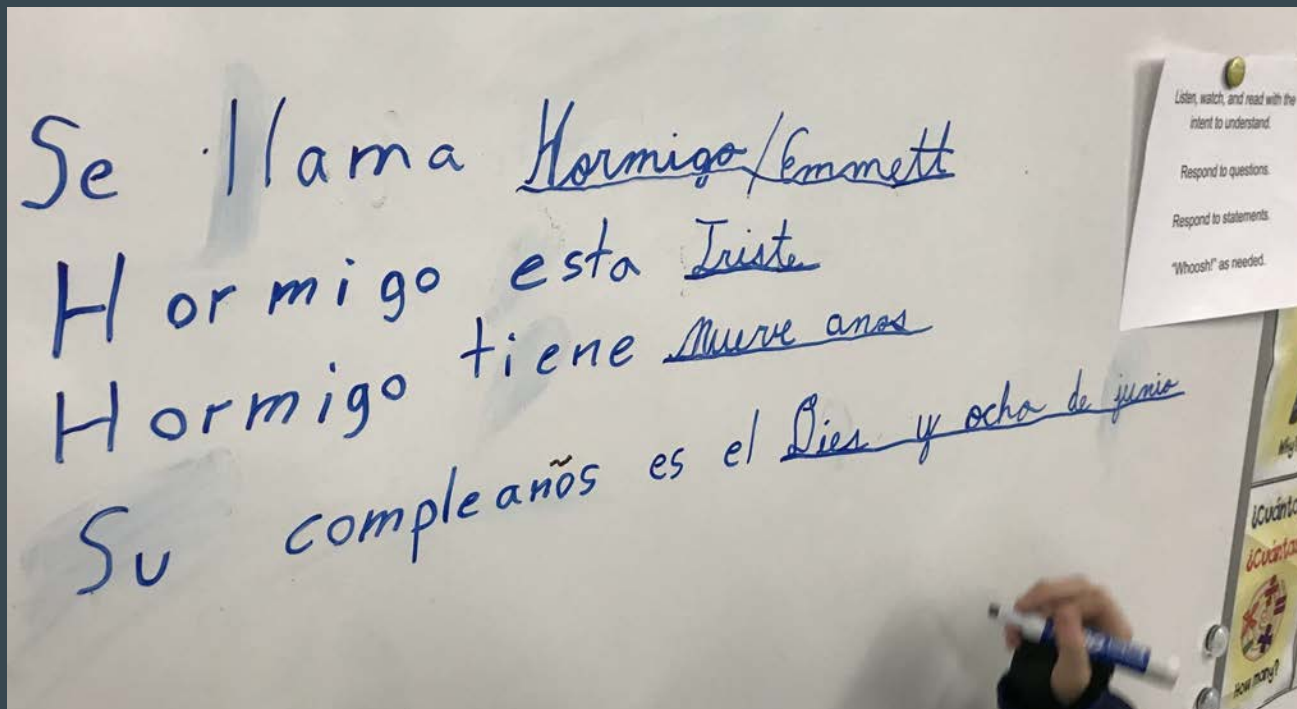 Se llama Hormigo/Emmett
Hormigo esta Triste
Hormigo tiene nueve anos
Su compleaños es el Dies y ocho de junio
Listen, watch, and read with the
intent to understand.
Respond to questions.
Respond to statements.
"Whoosh!" as needed.
Why?
How many?